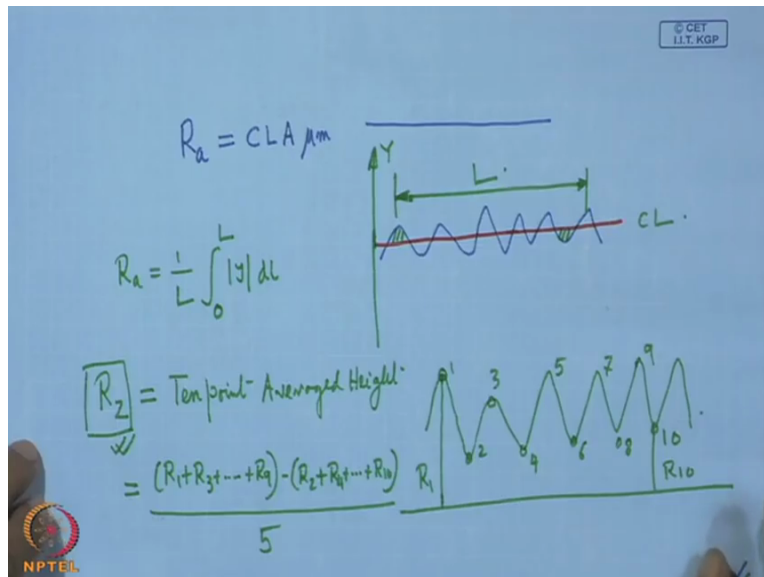 © CET
I.I.T. KGP
Ra = CLA μm
Y
L.
CL.
Ra = 1/L ∫₀ᴸ |y| dl
Rz = Ten point Averaged Height.
= (R1+R3+---+R9)-(R2+R4+--+R10)
5
1 2 3 4 5 6 7 8 9 10
R1
R10
NPTEL